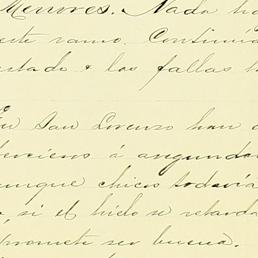 Menores. Nada ha
este ramo. Continúa
estado & las fallas
En San Lorenzo han
á asegundar
aunque chicos todavía
si el hielo se retarda
promete ser buena.